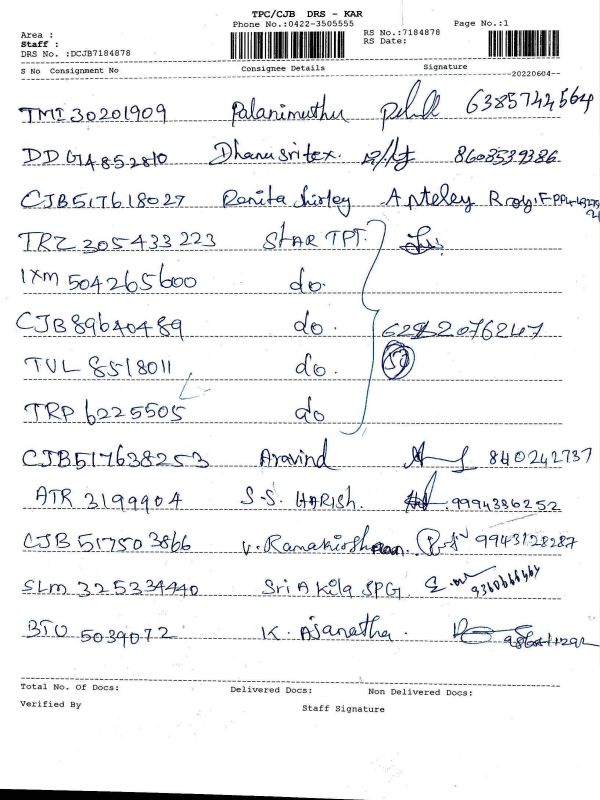 TPC/CJB DRS - KAR
Phone No.:0422-3505555 Page No.:1
Area :
Staff :
DRS No. :DCJB7184878
RS No.:7184878
RS Date:
S No Consignment No Consignee Details Signature
20220604
TMI 30201909 Palanimuthu 6385744564
DDG14852810 Dhanusritex. 8608539386
CJB517618027 Ranita Shirley
TRZ 305433223 STAR TPT.
IXM 504265600 do.
CJB 89640489 do.
TVL 85518011 do. 57
TRP 6225505 do
CJB517638253 Aravind 840242737
ATR 3199904 S.S. HARISH. 9994386252
CJB 517503866 9943128287
SLM 325334440 Sri Akila SPG.
5039072 K.
Total No. Of Docs: Delivered Docs: Non Delivered Docs:
Verified By Staff Signature